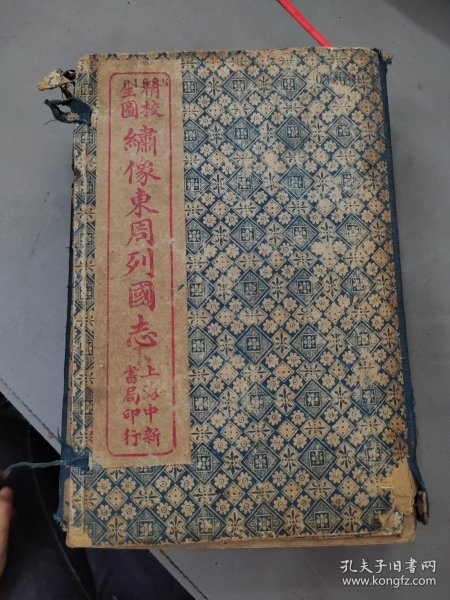 精校
全圖
繡像東周列國志
上海中新
書局印行
孔夫子旧书网
www.kongfz.com